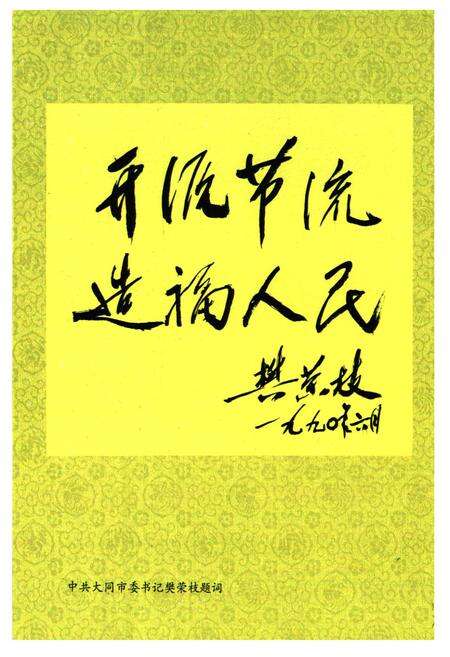 开源节流
造福人民
樊荣枝
一九九〇年六月
中共大同市委书记樊荣枝题词